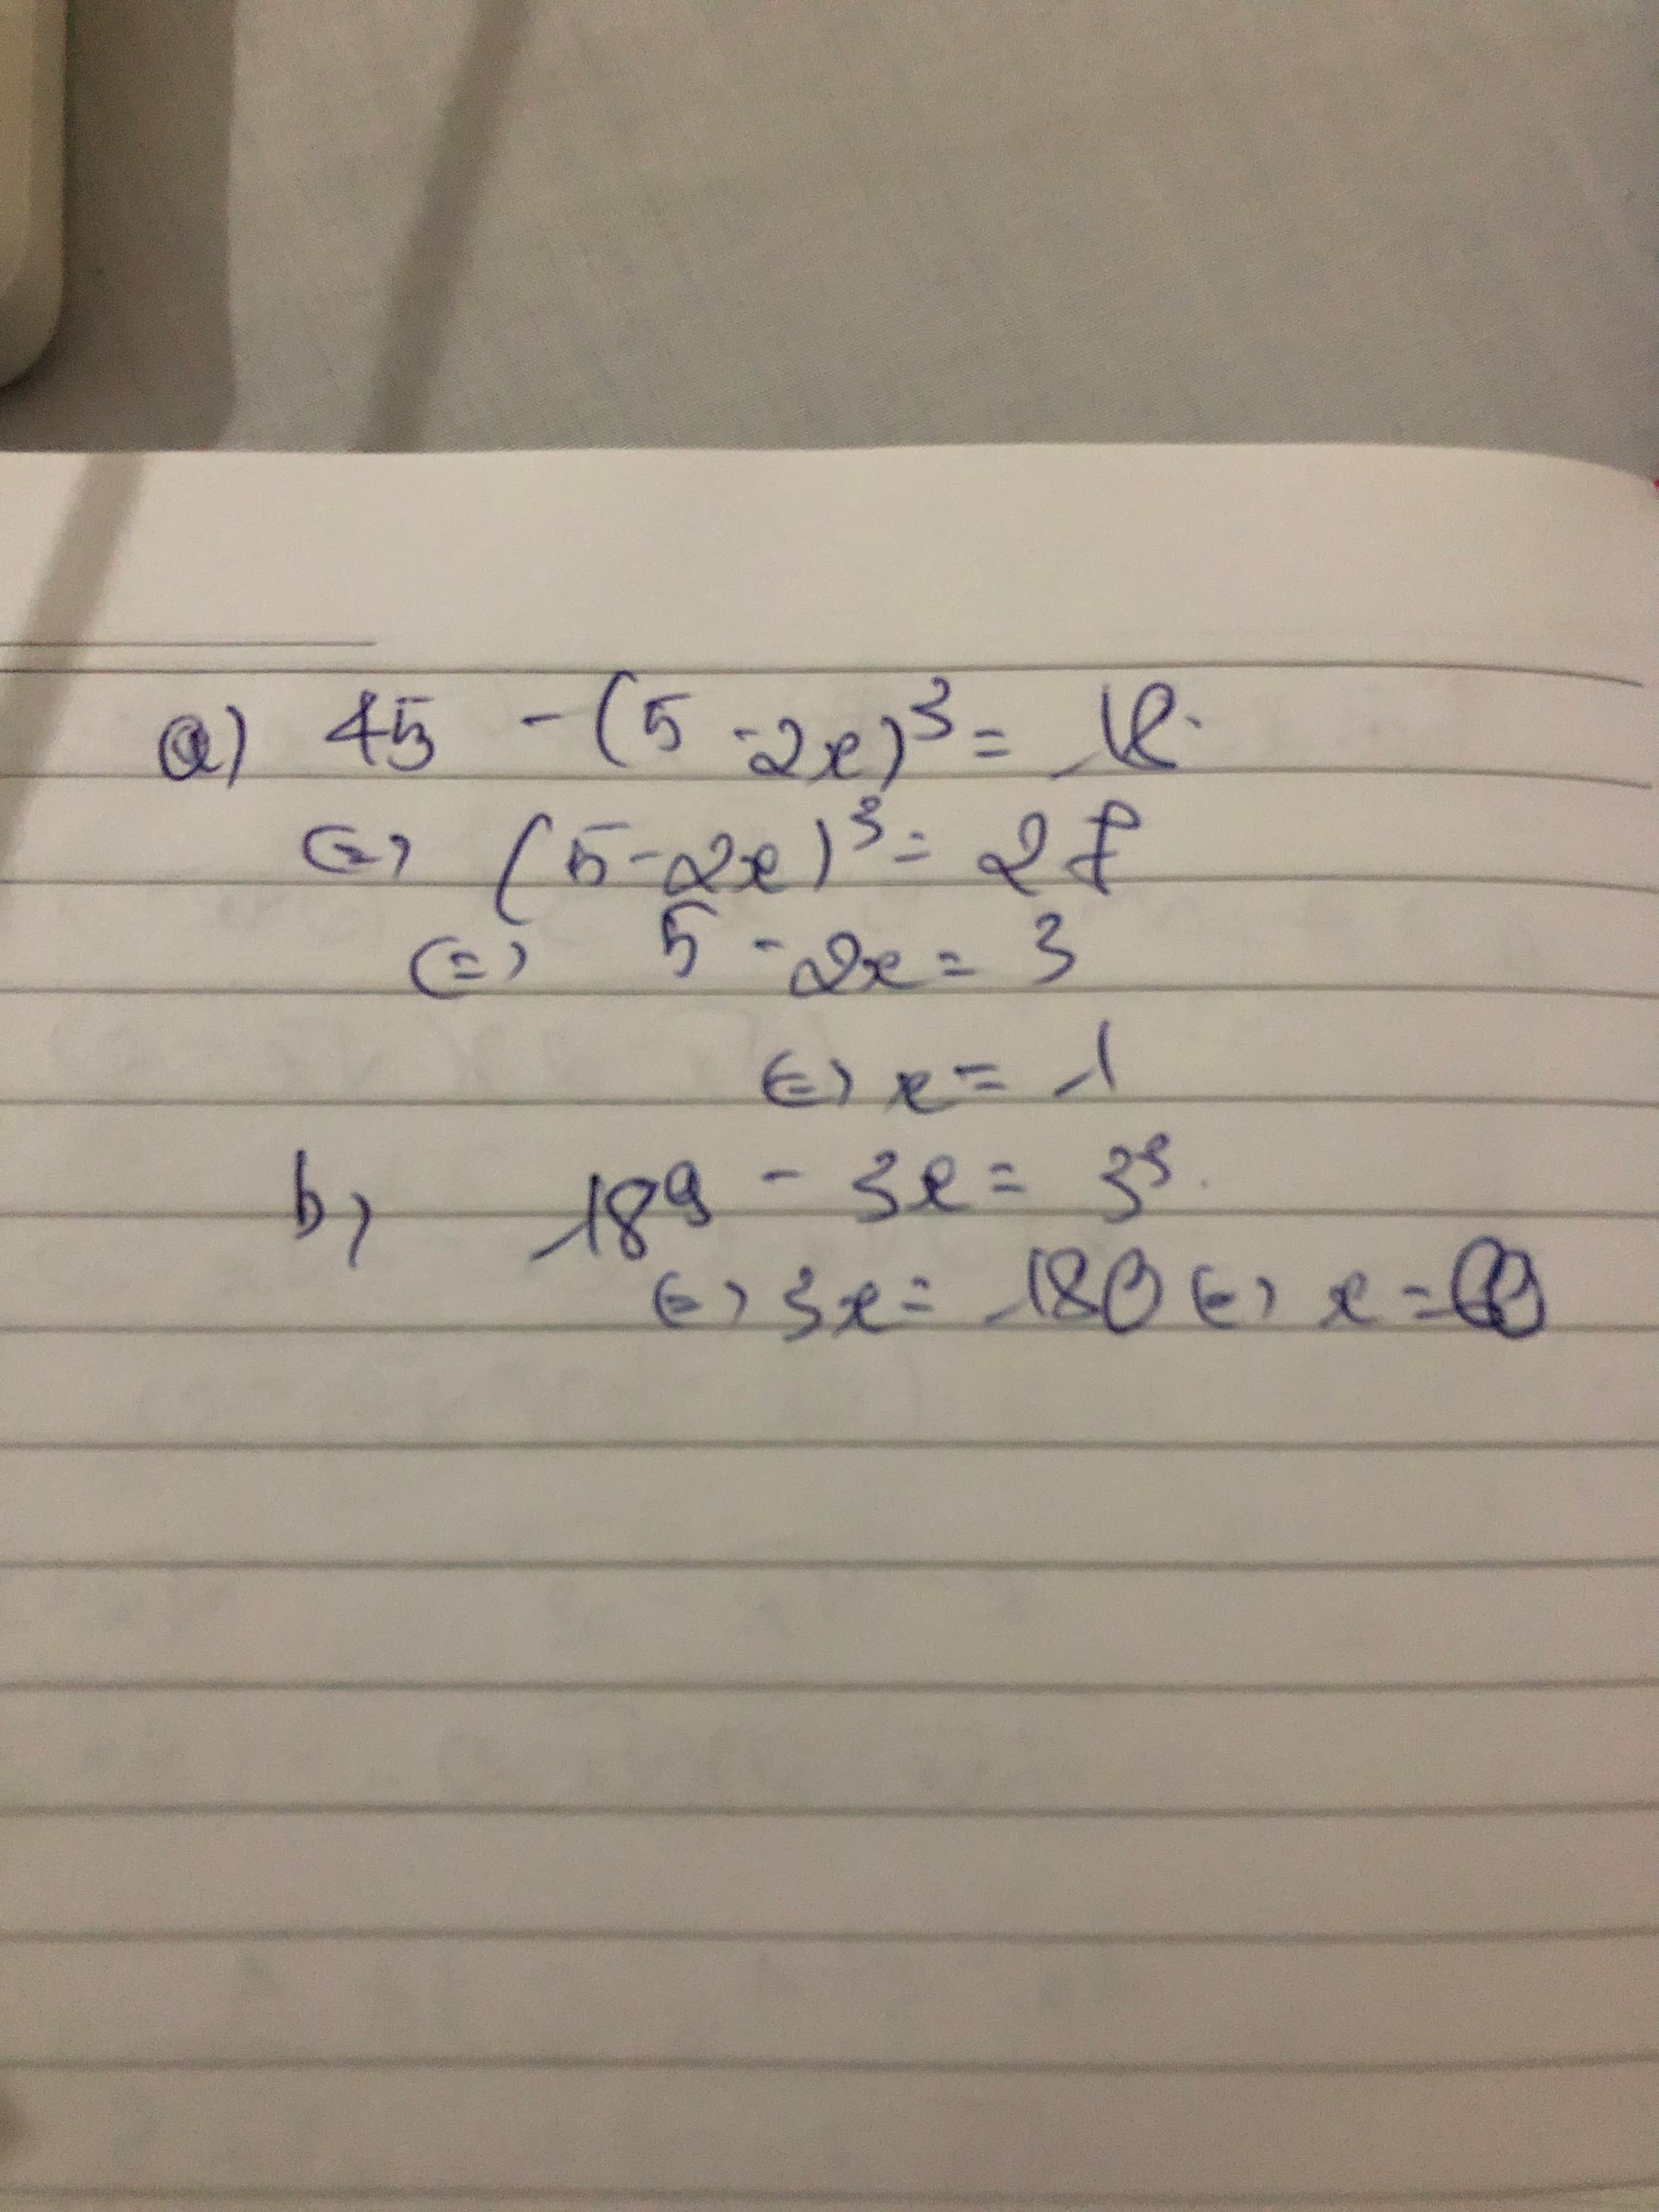 a) 45 - (5 - 2x)³ = 18
<=> (5 - 2x)³ = 27
<=> 5 - 2x = 3
<=> x = 1
b, 189 - 3x = 3³.
<=> 3x = 180 <=> x = 60